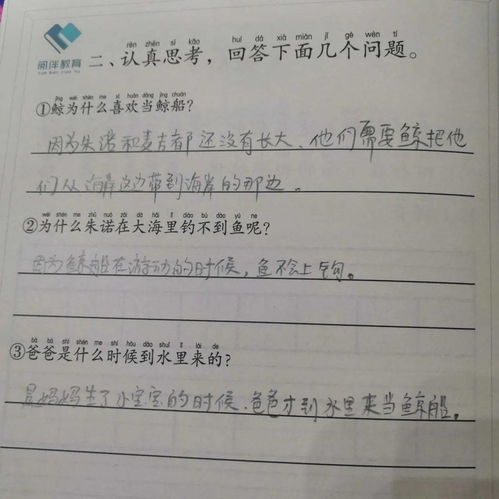 阅伴教育
rèn zhēn sī kǎo huí dá xià miàn jǐ gè wèn tí
二、认真思考，回答下面几个问题。
jīng wèi shén me xǐ huān dāng jīng chuán
①鲸为什么喜欢当鲸船?
因为朱诺和麦吉都还没有长大、他们需要鲸把他
们从海岸这边带到海岸的那边。
wèi shén me zhū nuò zài dà hǎi lǐ diào bú dào yú ne
②为什么朱诺在大海里钓不到鱼呢?
因为鲸船在游动的时候，鱼不会上钩。
bà ba shì shén me shí hòu dào shuǐ lǐ lái de
③爸爸是什么时候到水里来的?
是妈妈生了小宝宝的时候、爸爸才到水里来当鲸船。